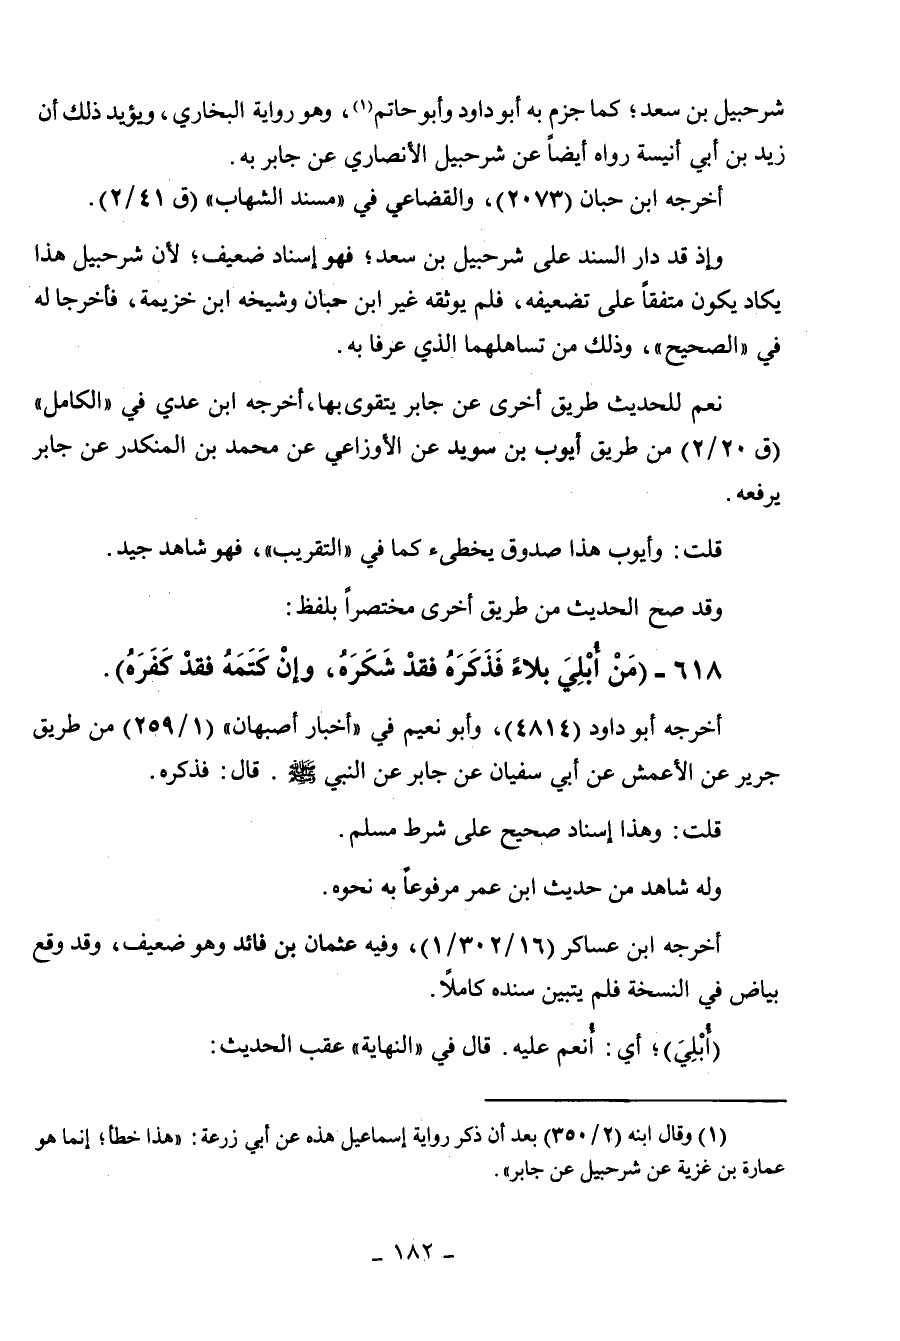 شرحبيل بن سعد؛ كما جزم به أبو داود وأبو حاتم(١)، وهو رواية البخاري، ويؤيد ذلك أن
زيد بن أبي أنيسة رواه أيضاً عن شرحبيل الأنصاري عن جابر به.
أخرجه ابن حبان (٢٠٧٣)، والقضاعي في «مسند الشهاب» (ق ٢/٤١).
وإذ قد دار السند على شرحبيل بن سعد؛ فهو إسناد ضعيف؛ لأن شرحبيل هذا
يكاد يكون متفقاً على تضعيفه، فلم يوثقه غير ابن حبان وشيخه ابن خزيمة، فأخرجا له
في «الصحيح»، وذلك من تساهلهما الذي عرفا به.
نعم للحديث طريق أخرى عن جابر يتقوى بها، أخرجه ابن عدي في «الكامل»
(ق ٢/٢٠) من طريق أيوب بن سويد عن الأوزاعي عن محمد بن المنكدر عن جابر
يرفعه.
قلت: وأيوب هذا صدوق يخطىء كما في «التقريب»، فهو شاهد جيد.
وقد صح الحديث من طريق أخرى مختصراً بلفظ:
٦١٨ - (مَنْ أُبْلِيَ بلاءً فَذَكَرَهُ فقدْ شَكَرَهُ، وإنْ كَتَمَهُ فقدْ كَفَرَهُ).
أخرجه أبو داود (٤٨١٤)، وأبو نعيم في «أخبار أصبهان» (٢٥٩/١) من طريق
جرير عن الأعمش عن أبي سفيان عن جابر عن النبي ﷺ . قال: فذكره.
قلت: وهذا إسناد صحيح على شرط مسلم.
وله شاهد من حديث ابن عمر مرفوعاً به نحوه.
أخرجه ابن عساكر (١/٣٠٢/١٦)، وفيه عثمان بن فائد وهو ضعيف، وقد وقع
بياض في النسخة فلم يتبين سنده كاملًا.
(أُبْلِيَ)؛ أي: أُنعم عليه. قال في «النهاية» عقب الحديث:
(١) وقال ابنه (٣٥٠/٢) بعد أن ذكر رواية إسماعيل هذه عن أبي زرعة: «هذا خطأ؛ إنما هو
عمارة بن غزية عن شرحبيل عن جابر».
- ١٨٢ -